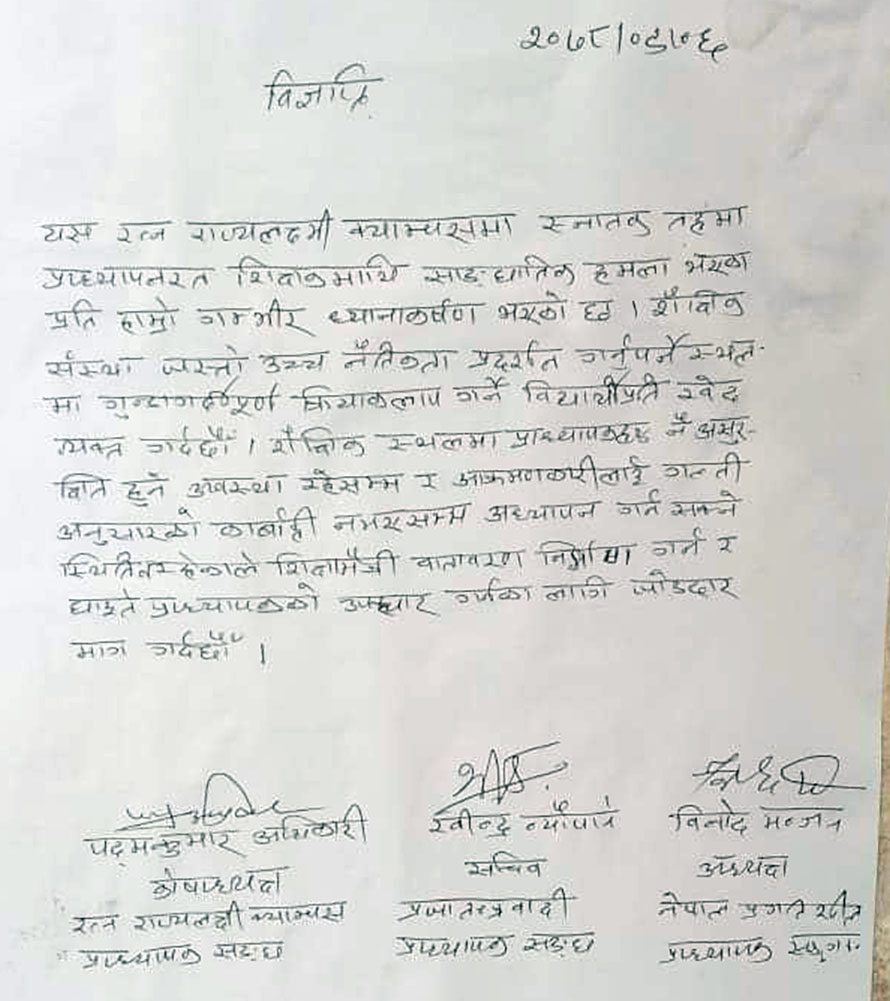 २०७८।०९।०६
विज्ञप्ति
यस रत्न राज्यलक्ष्मी क्याम्पसमा स्नातक तहमा
प्राध्यापनरत शिक्षकमाथि साङ्घातिक हमला भएका
प्रति हाम्रो गम्भीर ध्यानाकर्षण भएको छ । शैक्षिक
संस्था जस्तो उच्च नैतिकता प्रदर्शत गर्नुपर्ने स्थल-
मा गुन्डागर्दीपूर्ण क्रियाकलाप गर्ने विद्यार्थीप्रति खेद
व्यक्त गर्दछौं । शैक्षिक स्थलमा प्राध्यापकहरू नै असुर-
क्षित हुने अवस्था रहेसम्म र आक्रमणकारीलाई गल्ती
अनुसारको कार्बाही नभएसम्म अध्यापन गर्न सक्ने
स्थिति नरहेकाले शिक्षामैत्री वातावरण निर्माण गर्न र
घाइते प्राध्यापकको उपचार गर्नका लागि जोडदार
माग गर्दछौं ।
पद्मकुमार अधिकारी
कोषाध्यक्ष
रत्न राज्यलक्ष्मी क्याम्पस
प्राध्यापक सङ्घ
रवीन्द्र न्यौपाने
सचिव
प्रजातन्त्रवादी
प्राध्यापक सङ्घ
विनोद
अध्यक्ष
नेपाल प्रगतिशील
प्राध्यापक